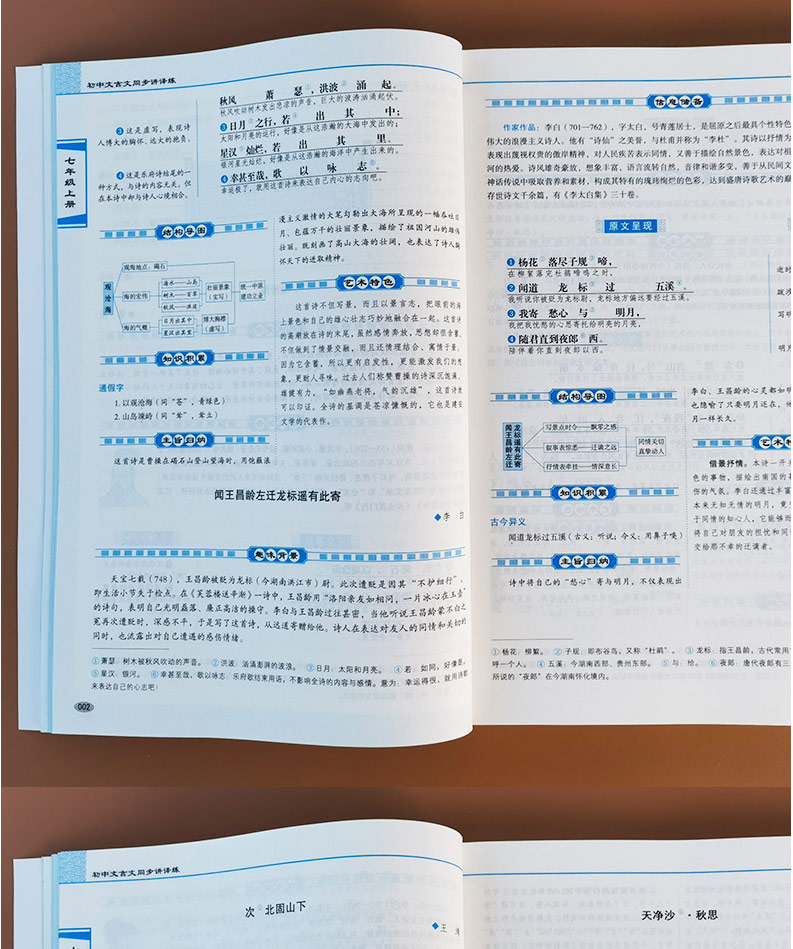 初中文言文同步讲译练
七年级上册
秋风 萧 瑟①,洪波② 涌 起。
秋风吹动树木发出悲凉的声音,巨大的波涛汹涌起伏。
③日月③之行,若④ 出 其 中;
太阳和月亮的运行,好像是从这浩瀚的大海中发出的;
星汉⑤灿烂,若 出 其 里。
银河星光灿烂,好像是从这浩瀚的海洋中产生出来的。
④幸甚至哉,歌 以 咏 志⑥。
幸运极了,就用这首诗来表达自己内心的志向吧。
③这是虚写,表现诗
人博大的胸怀、远大的抱负。
④这是乐府诗结尾的一
种方式,与诗的内容无关,但
在本诗中却与诗人心境相合。
结构导图
观沧海
观海地点:碣石
海的宏伟
海水——山岛
树木——百草
秋风——洪波
壮丽景象
(实写)
海的气概
日月出其中
星汉出其里
博大胸襟
(虚写)
统一中原
建功立业
知识积累
通假字
1.以观沧海(同“苍”,青绿色)
2.山岛竦峙(同“耸”,耸立)
主旨归纳
这首诗是曹操在碣石山登山望海时,用他雄浪
漫主义激情的大笔勾勒出大海所呈现的一幅吞吐日
月、包蕴万千的壮丽景象,描绘了祖国河山的雄伟
壮丽。既刻画了高山大海的壮阔,也表达了诗人胸
怀天下的进取精神。
艺术特色
这首诗不但写景,而且以景言志,把眼前的海
上景色和自己的雄心壮志巧妙地融合在一起。这首诗
的高潮放在诗的末尾,虽然感情奔放,思想却很含蓄。
不但做到了情景交融,而且还情理结合、寓情于景。
因为它含蓄,所以更有启发性,更能激发我们的想
象,更耐人寻味。过去人们称赞曹操的诗深沉饱满、
雄健有力,“如幽燕老将,气韵沉雄”,这首诗就
可以印证。全诗的基调是苍凉慷慨的,它也是建安
文学的代表作。
闻王昌龄左迁龙标遥有此寄
◆李 白
趣味背景
天宝七载(748),王昌龄被贬为龙标(今湖南洪江市)尉。此次遭贬是因其“不护细行”,
即生活小节失于检点。在《芙蓉楼送辛渐》一诗中,王昌龄用“洛阳亲友如相问,一片冰心在玉壶”
的诗句,表明自己光明磊落、廉正高洁的操守。李白与王昌龄过往甚密,当他听说王昌龄蒙不白之
冤再次遭贬时,深感不平,于是写了这首诗,从远道寄赠给他。诗人在表达对友人的同情和关切的
同时,也流露出对自己遭遇的感伤情绪。
①萧瑟:树木被秋风吹动的声音。 ②洪波:汹涌澎湃的波浪。 ③日月:太阳和月亮。 ④若:如同,好像是。
⑤星汉:银河。 ⑥幸甚至哉,歌以咏志:乐府歌结束用语,不影响全诗的内容与感情。意为:幸运得很,就用诗歌
来表达自己的心志吧!
002
信息储备
作家作品:李白(701—762),字太白,号青莲居士,是屈原之后最具个性特色
伟大的浪漫主义诗人。他有“诗仙”之美誉,与杜甫并称为“李杜”。其诗以抒情为
表现出蔑视权贵的傲岸精神,对人民疾苦表示同情,又善于描绘自然景色,表达对祖
河的热爱。诗风雄奇豪放,想象丰富,语言流转自然,音律和谐多变,善于从民间文
神话传说中吸取营养和素材,构成其特有的瑰玮绚烂的色彩,达到盛唐诗歌艺术的巅
存世诗文千余篇,有《李太白集》三十卷。
原文呈现
①杨花①落尽子规②啼,
在柳絮落完杜鹃啼鸣之时,
②闻道 龙 标③ 过 五溪④。
我听说你被贬为龙标尉,龙标地方偏远要经过五溪。
③我寄 愁心 与⑤ 明月,
我把我忧愁的心思寄托给明亮的月亮,
④随君直到夜郎⑥西。
陪伴着你直到夜郎以西。
结构导图
闻王昌龄左迁
龙标遥有此寄
写景点时令——飘零之感
叙事表惊悉——迁谪之远
抒情表牵挂——情深意长
同情关切
真挚动人
知识积累
古今异义
闻道龙标过五溪(古义:听说;今义:用鼻子嗅)
主旨归纳
诗中将自己的“愁心”寄与明月,不仅表现出
李白、王昌龄的心灵都如明
也隐喻了只要明月还在,他
月一样长久。
艺术特
借景抒情。本诗一开头
色的事物,描绘出南国的暮
伤的气氛。李白还通过丰富
本来无知无情的明月,竟变
于同情的知心人,它能够而
将自己对朋友的担忧和同情
交给那不幸的迁谪者。
①杨花:柳絮。 ②子规:即布谷鸟,又称“杜鹃”。 ③龙标:指王昌龄,古代常用
呼一个人。 ④五溪:今湖南西部、贵州东部。 ⑤与:给。 ⑥夜郎:唐代夜郎有三
所说的“夜郎”在今湖南怀化境内。
初中文言文同步讲译练
次①北固山下
◆王 湾
天净沙①·秋思